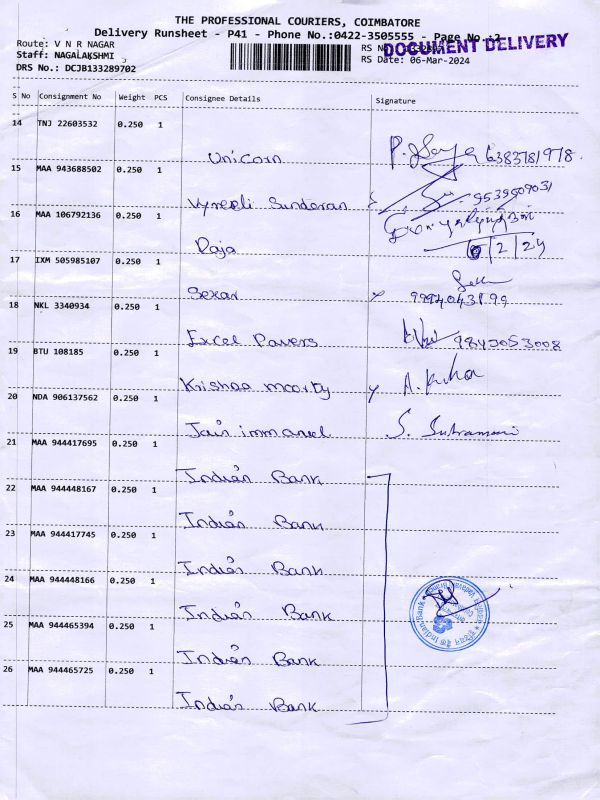 THE PROFESSIONAL COURIERS, COIMBATORE
Delivery Runsheet - P41 - Phone No.:0422-3505555 - Page No.:2
DOCUMENT DELIVERY
Route: V N R NAGAR
RS No
Staff: NAGALAKSHMI
RS Date: 06-Mar-2024
DRS No.: DCJB133289702
S No Consignment No Weight PCS Consignee Details Signature
14 TNJ 22603532 0.250 1
Unicorn 6383781978
15 MAA 943688502 0.250 1
Sundaran
16 MAA 106792136 0.250 1
Raja
17 IXM 505985107 0.250 1
Sekar
18 NKL 3340934 0.250 1
Excel Pavers 9843053008
19 BTU 108185 0.250 1
Krishna moorty
20 NDA 906137562 0.250 1
Jain immanuel
21 MAA 944417695 0.250 1
Indian Bank
22 MAA 944448167 0.250 1
Indian Bank
23 MAA 944417745 0.250 1
Indian Bank
24 MAA 944448166 0.250 1
Indian Bank
25 MAA 944465394 0.250 1
Indian Bank
26 MAA 944465725 0.250 1
Indian Bank